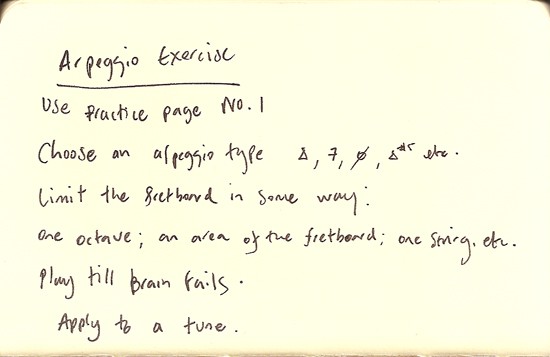 Arpeggio Exercise
Use Practice page No. 1
Choose an arpeggio type Δ, 7, ø, Δ#5 etc.
Limit the fretboard in some way:
One octave; an area of the fretboard; one string. etc.
Play till Brain Fails.
Apply to a tune.